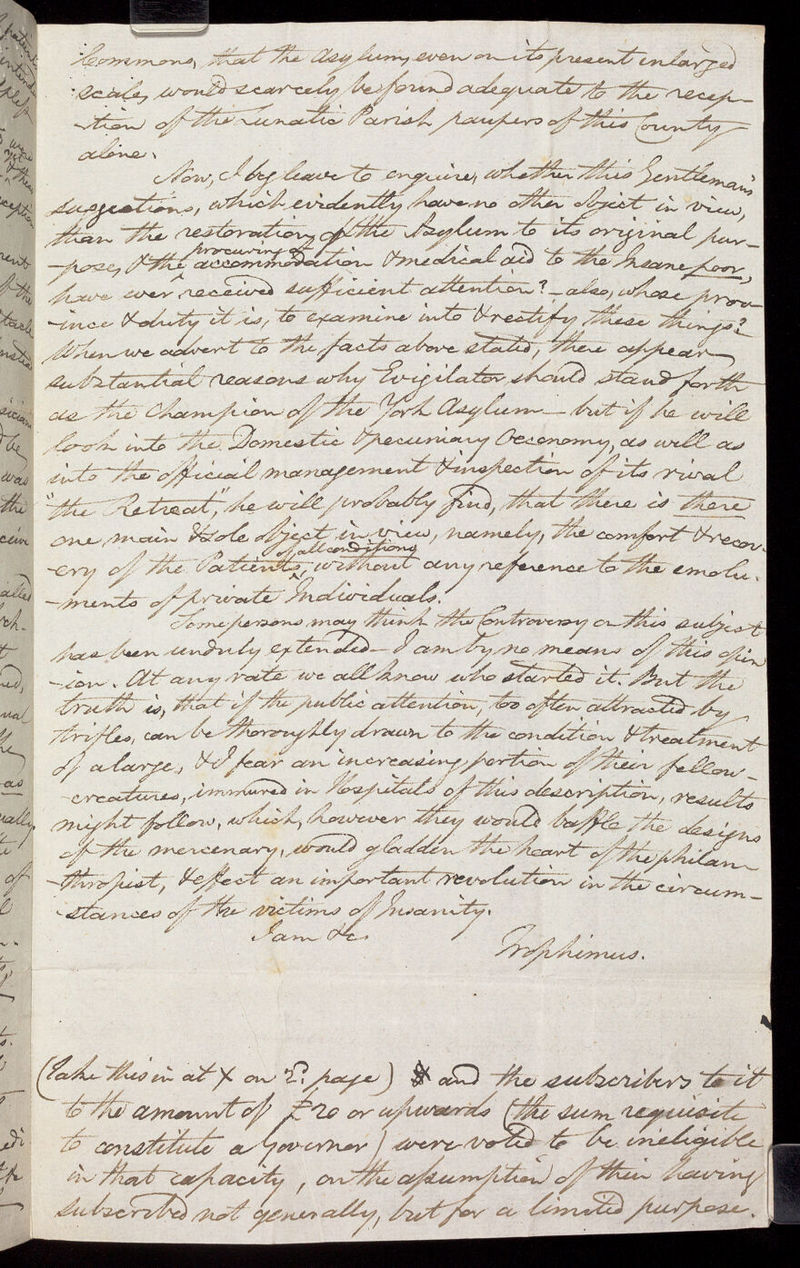 Commons, that the Asylum, even on its present enlarged
scale, would scarcely be found adequate to the recep-
-tion of the Lunatic Parish paupers of this County
alone.
Now, I beg leave to enquire, whether this Gentleman's
suggestions, which evidently have no other object in view,
than the restoration of the Asylum to its original pur-
procuring of
-pose, & the accommodation & medical aid to the Insane poor,
have ever received sufficient attention? - also, whose prov-
-ince & duty it is, to examine into & rectify these things?
When we advert to the facts above stated, there appear
substantial reasons why Evigilator should stand forth
as the Champion of the York Asylum - but if he will
look into the Domestic & pecuniary Oeconomy, as well as
into the official management & inspection of its rival
"the Retreat", he will probably find, that there is there
one main & sole object in view, namely, the comfort & recov-
of all conditions
-ery of the Patients, without any reference to the emolu-
-ments of private Individuals.
Some persons may think the Controversy on this subject
has been unduly extended - I am by no means of this opin
-ion. At any rate we all know who started it. But the
truth is, that if the public attention, too often attracted by
trifles, can be thoroughly drawn to the condition & treatment
of a large, & I fear an increasing portion of their fellow-
-creatures, immured in Hospitals of this description, results
might follow, which, however they would baffle the designs
of the mercenary, would gladden the heart of the philan-
-thropist, & effect an important revolution in the circum-
-stances of the victims of Insanity.
I am &c
Trophimus.
(Take this in at X on 2d. page) & and the subscribers to it
to the amount of £20 or upwards (the sum requisite
to constitute a Governor) were voted to be ineligible
in that capacity, on the assumption of their having
subscribed not generally, but for a limited purpose.